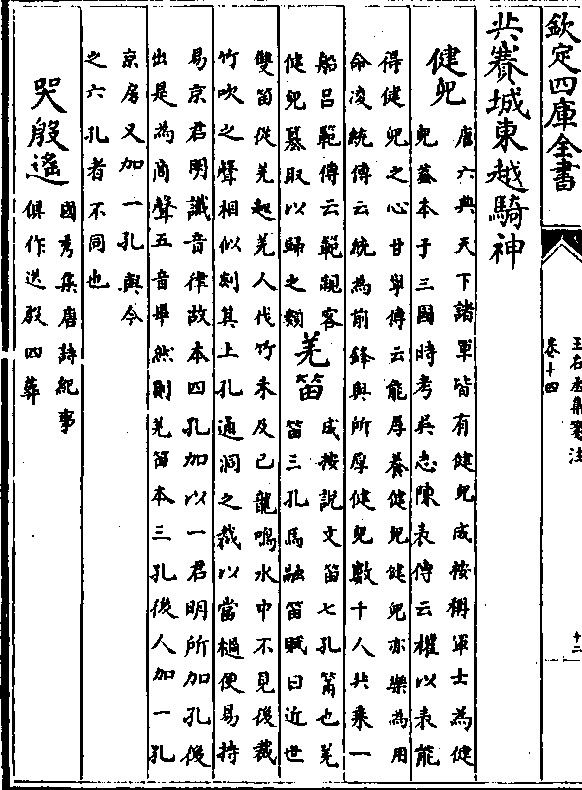 欽定四庫全書
王右丞集箋注
卷十四
十二
共賽城東越騎神
健兒
唐六典天下諸軍皆有健兒成按稱軍士為健
兒蓋本于三國時考吳志陳表傳云權以表能
得健兒之心甘寧傳云能厚養健兒健兒亦樂為用
命凌統傳云統為前鋒與所厚健兒數十人共乘一
船呂範傳云範親客
健兒慕取以歸之類
羌笛
成按説文笛七孔筩也羌
笛三孔馬融笛賦曰近世
雙笛從羌起羌人伐竹未及已龍鳴水中不見後裁
竹吹之聲相似剡其上孔通洞之裁以當檛便易持
易京君明識音律故本四孔加以一君明所加孔後
出是為商聲五音畢然則羌笛本三孔後人加一孔
京房又加一孔與今
之六孔者不同也
哭殷遙
國秀集唐詩紀事
俱作送殷四葬